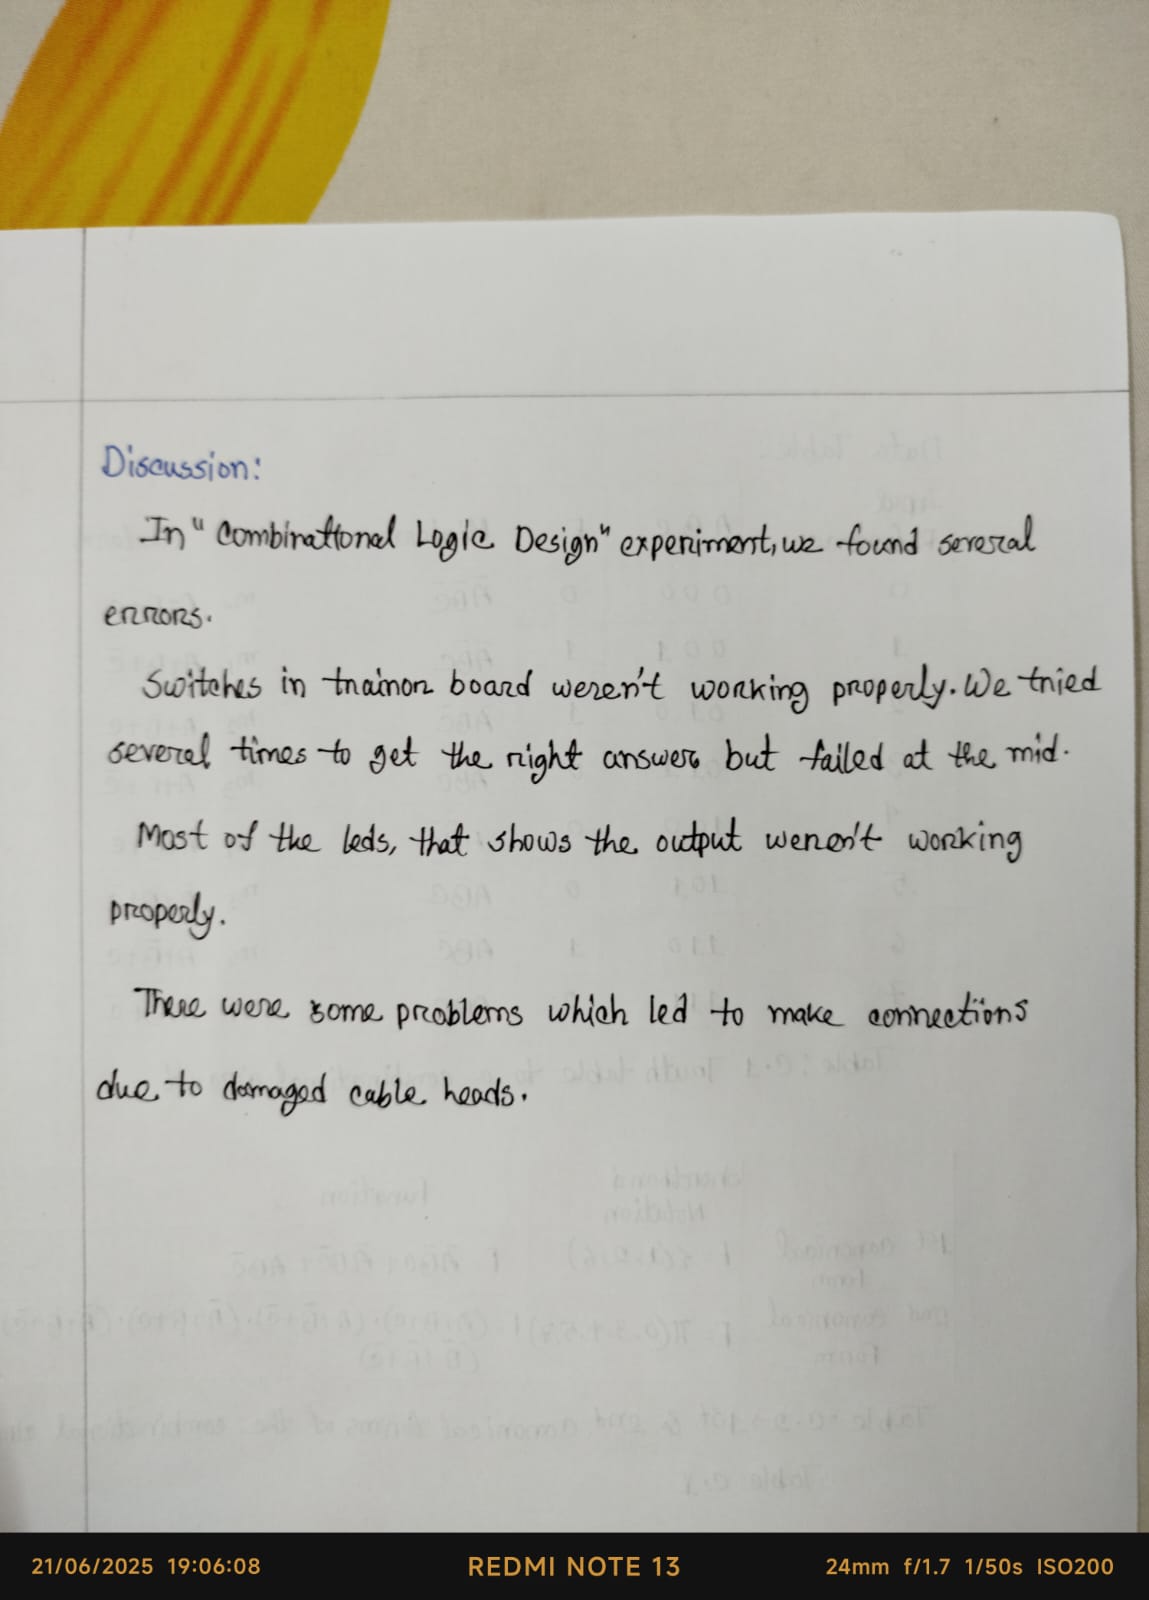 Discussion:
In "Combinational Logic Design" experiment, we found several
errors.
Switches in trainor board weren't working properly. We tried
several times to get the right answer but failed at the mid.
Most of the leds, that shows the output weren't working
properly.
There were some problems which led to make connections
due to damaged cable heads.
21/06/2025 19:06:08 REDMI NOTE 13 24mm f/1.7 1/50s ISO200